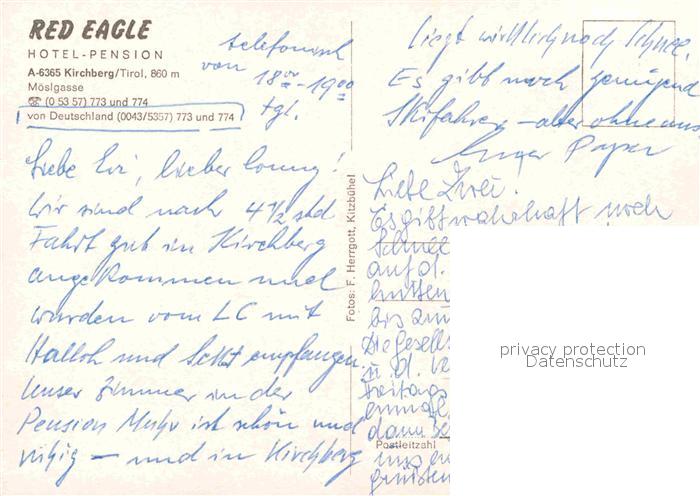 RED EAGLE
HOTEL-PENSION
A-6365 Kirchberg/Tirol, 860 m
Möslgasse
☎ (0 53 57) 773 und 774
von Deutschland (0043/5357) 773 und 774
telefonisch
von 18 00 - 19 00
tgl.
Liebe Evi, lieber Conny!
Wir sind nach 4 1/2 std
Fahrt gut in Kirchberg
angekommen und
wurden vom LC mit
Halloh und Sekt empfangen.
Unser Zimmer in der
Pension Muhr ist schön und
ruhig – und in Kirchberg
Fotos: F. Herrgott, Kitzbühel
liegt wirklich noch Schnee.
Es gibt noch genügend
Skifahrer – aber ohne uns
Euer Papa
Liebe Zwei.
Es gibt wahrhaft noch
Schnee
auf d.
hütten
bis zum
Die Gesells
u. d.
Freitag
einmal
dann
Postleitzahl
uns
privacy protection
Datenschutz